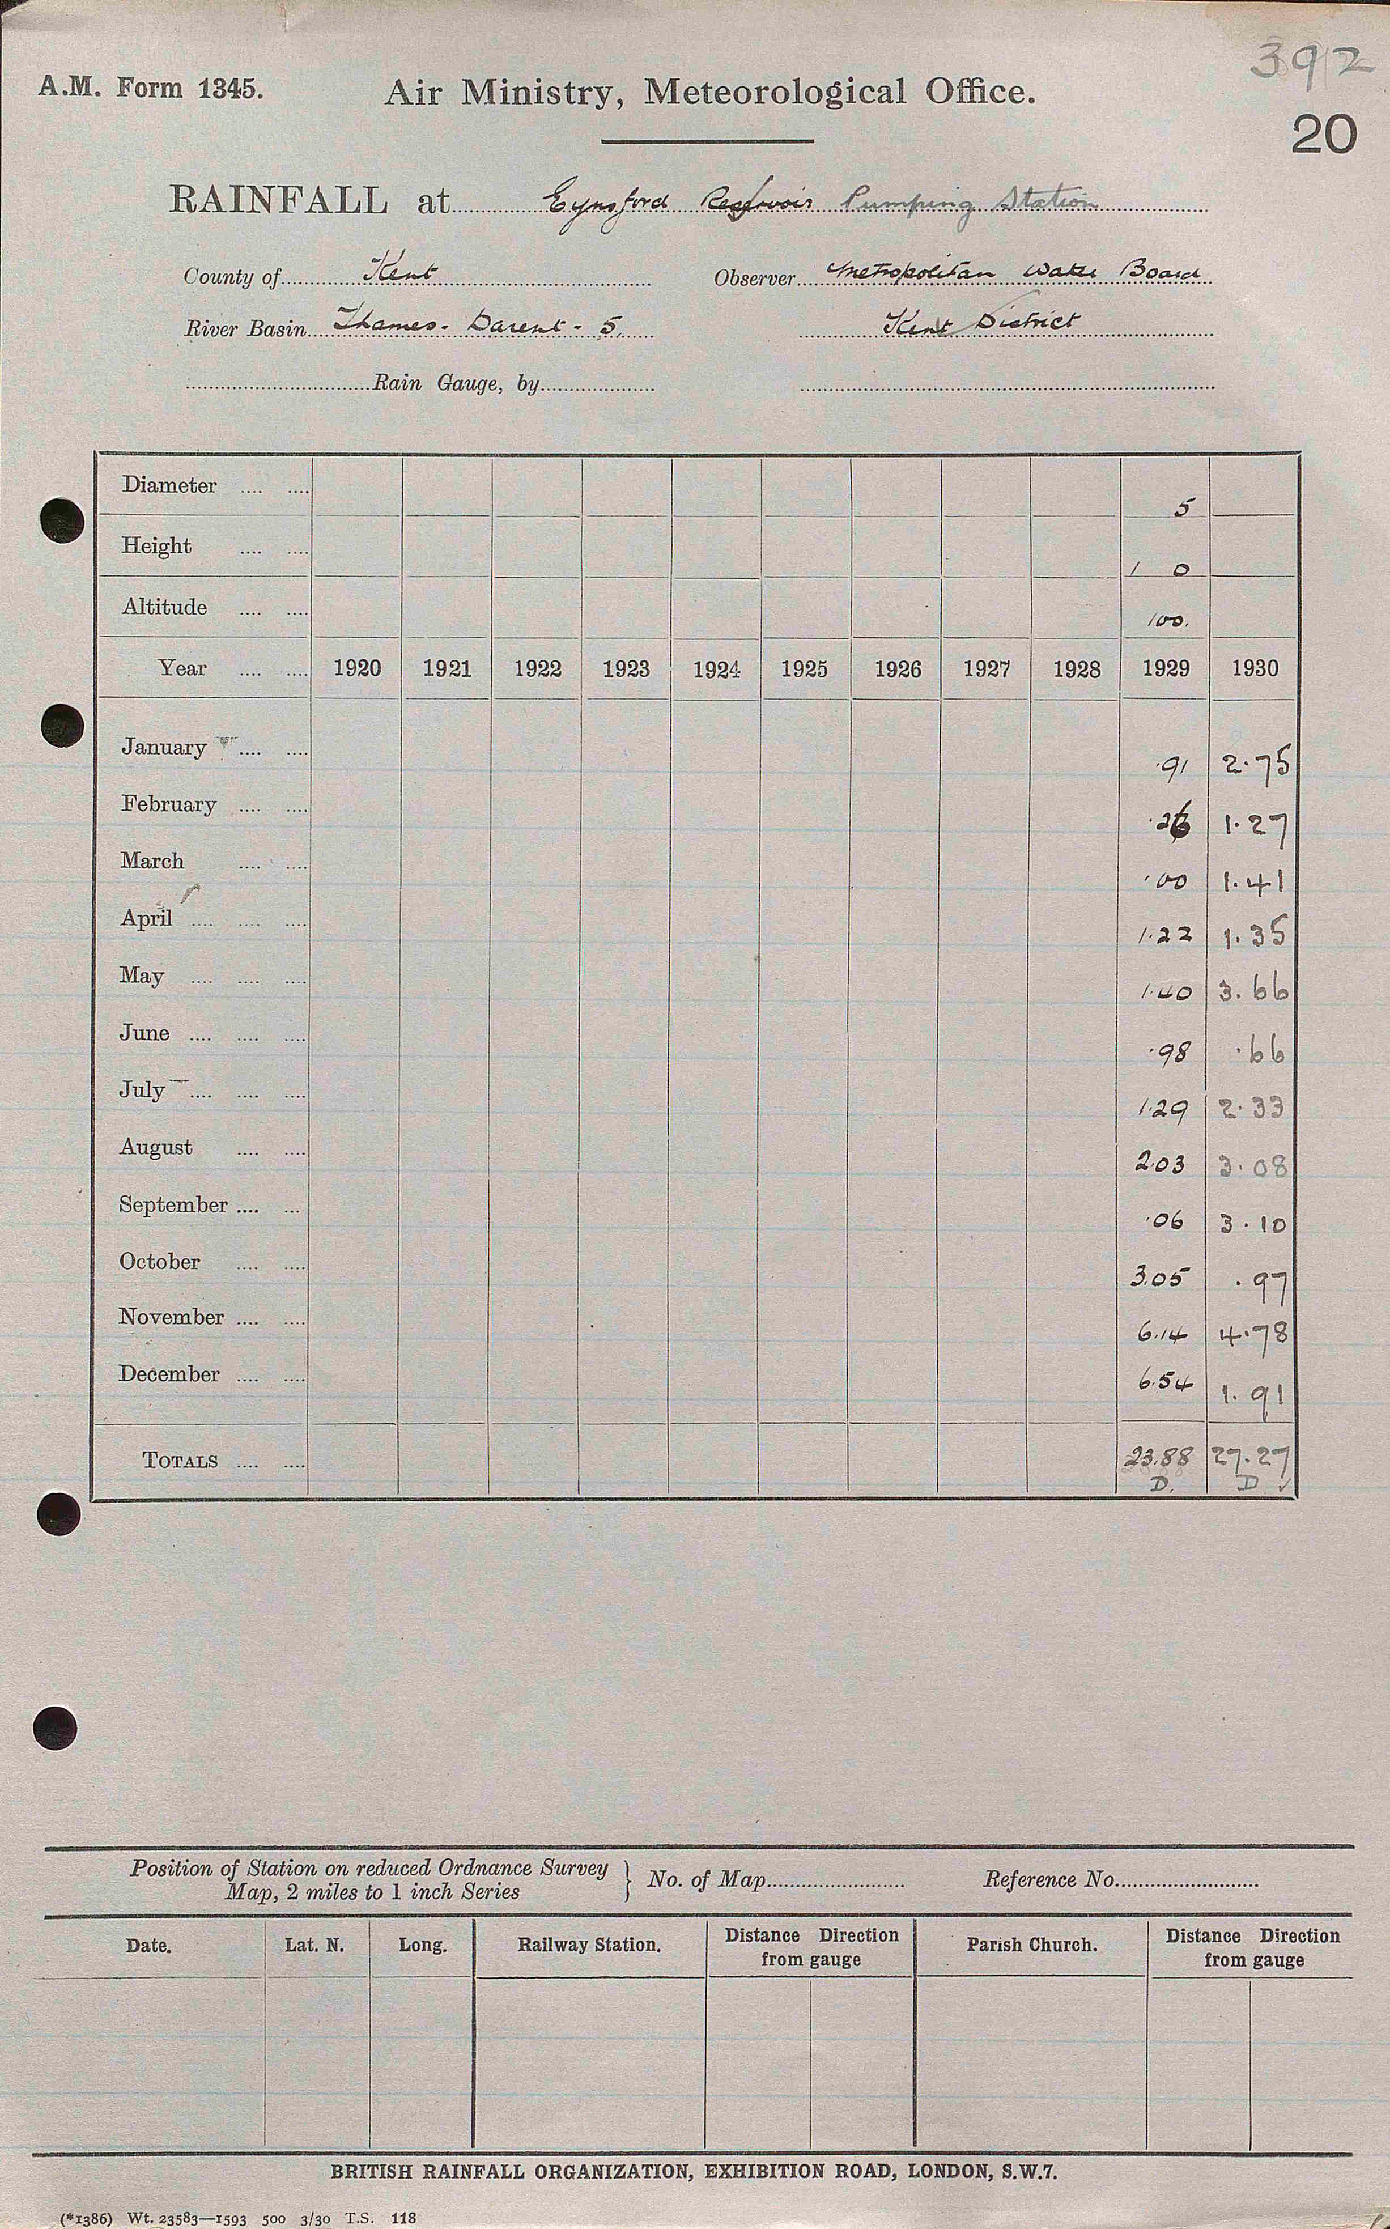 392
A.M. Form 1345. Air Ministry, Meteorological Office.
20
RAINFALL at Eynsford Reservoir Pumping Station
County of Kent Observer Metropolitan Water Board
River Basin Thames - Darent - 5. Kent District
Rain Gauge, by
Diameter .... .... 5
Height .... .... 1 0
Altitude .... .... 100.
Year .... .... 1920 1921 1922 1923 1924 1925 1926 1927 1928 1929 1930
January .... .... .91 2.75
February .... .... .26 1.27
March .... .... .00 1.41
April .... .... .... 1.22 1.35
May .... .... .... 1.40 3.66
June .... .... .... .98 .66
July .... .... .... 1.29 2.33
August .... .... 2.03 3.08
September .... .... .06 3.10
October .... .... 3.05 .97
November .... .... 6.14 4.78
December .... .... 6.54 1.91
TOTALS .... .... 23.88 27.27
D. D ✓
Position of Station on reduced Ordnance Survey
Map, 2 miles to 1 inch Series } No. of Map Reference No.
Date. Lat. N. Long. Railway Station. Distance Direction from gauge Parish Church. Distance Direction from gauge
BRITISH RAINFALL ORGANIZATION, EXHIBITION ROAD, LONDON, S.W.7.
(*1386) Wt. 23583—1593 500 3/30 T.S. 118